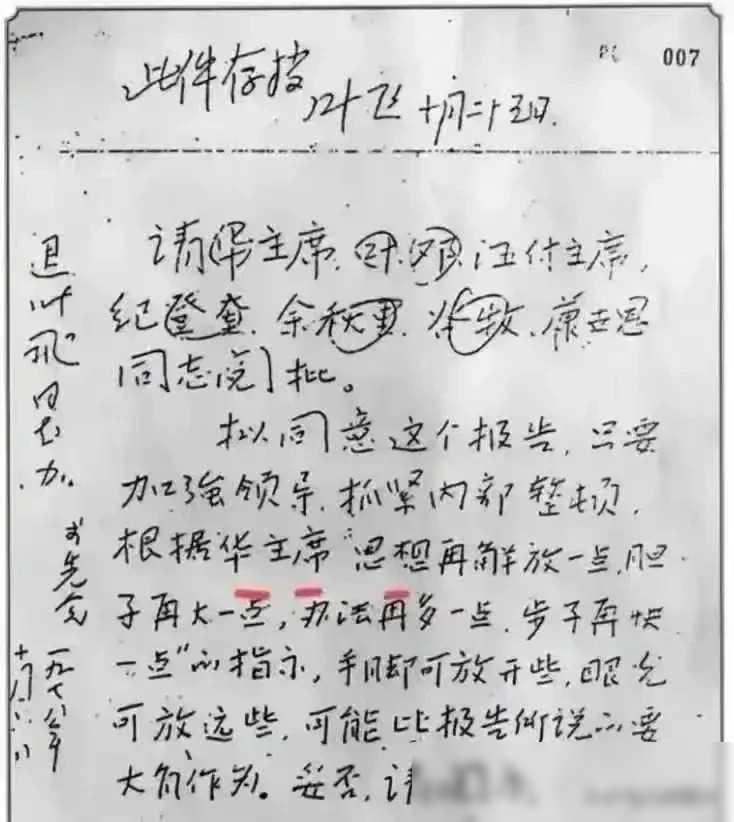 007
此件存档
叶飞 十月二十五日.
请华主席、叶、邓、汪付主席,
纪登奎、余秋里、谷牧、康世恩
同志阅批。
拟同意这个报告,只要
加強领导,抓紧内部整顿,
根据华主席 思想再解放一点,胆
子再大一点,办法再多一点,步子再快
一点"的指示,手脚可放开些,眼光
可放远些,可能比报告所说的要
大有作为。妥否,请
退叶飞同志办.
李先念
一九七八年
十月